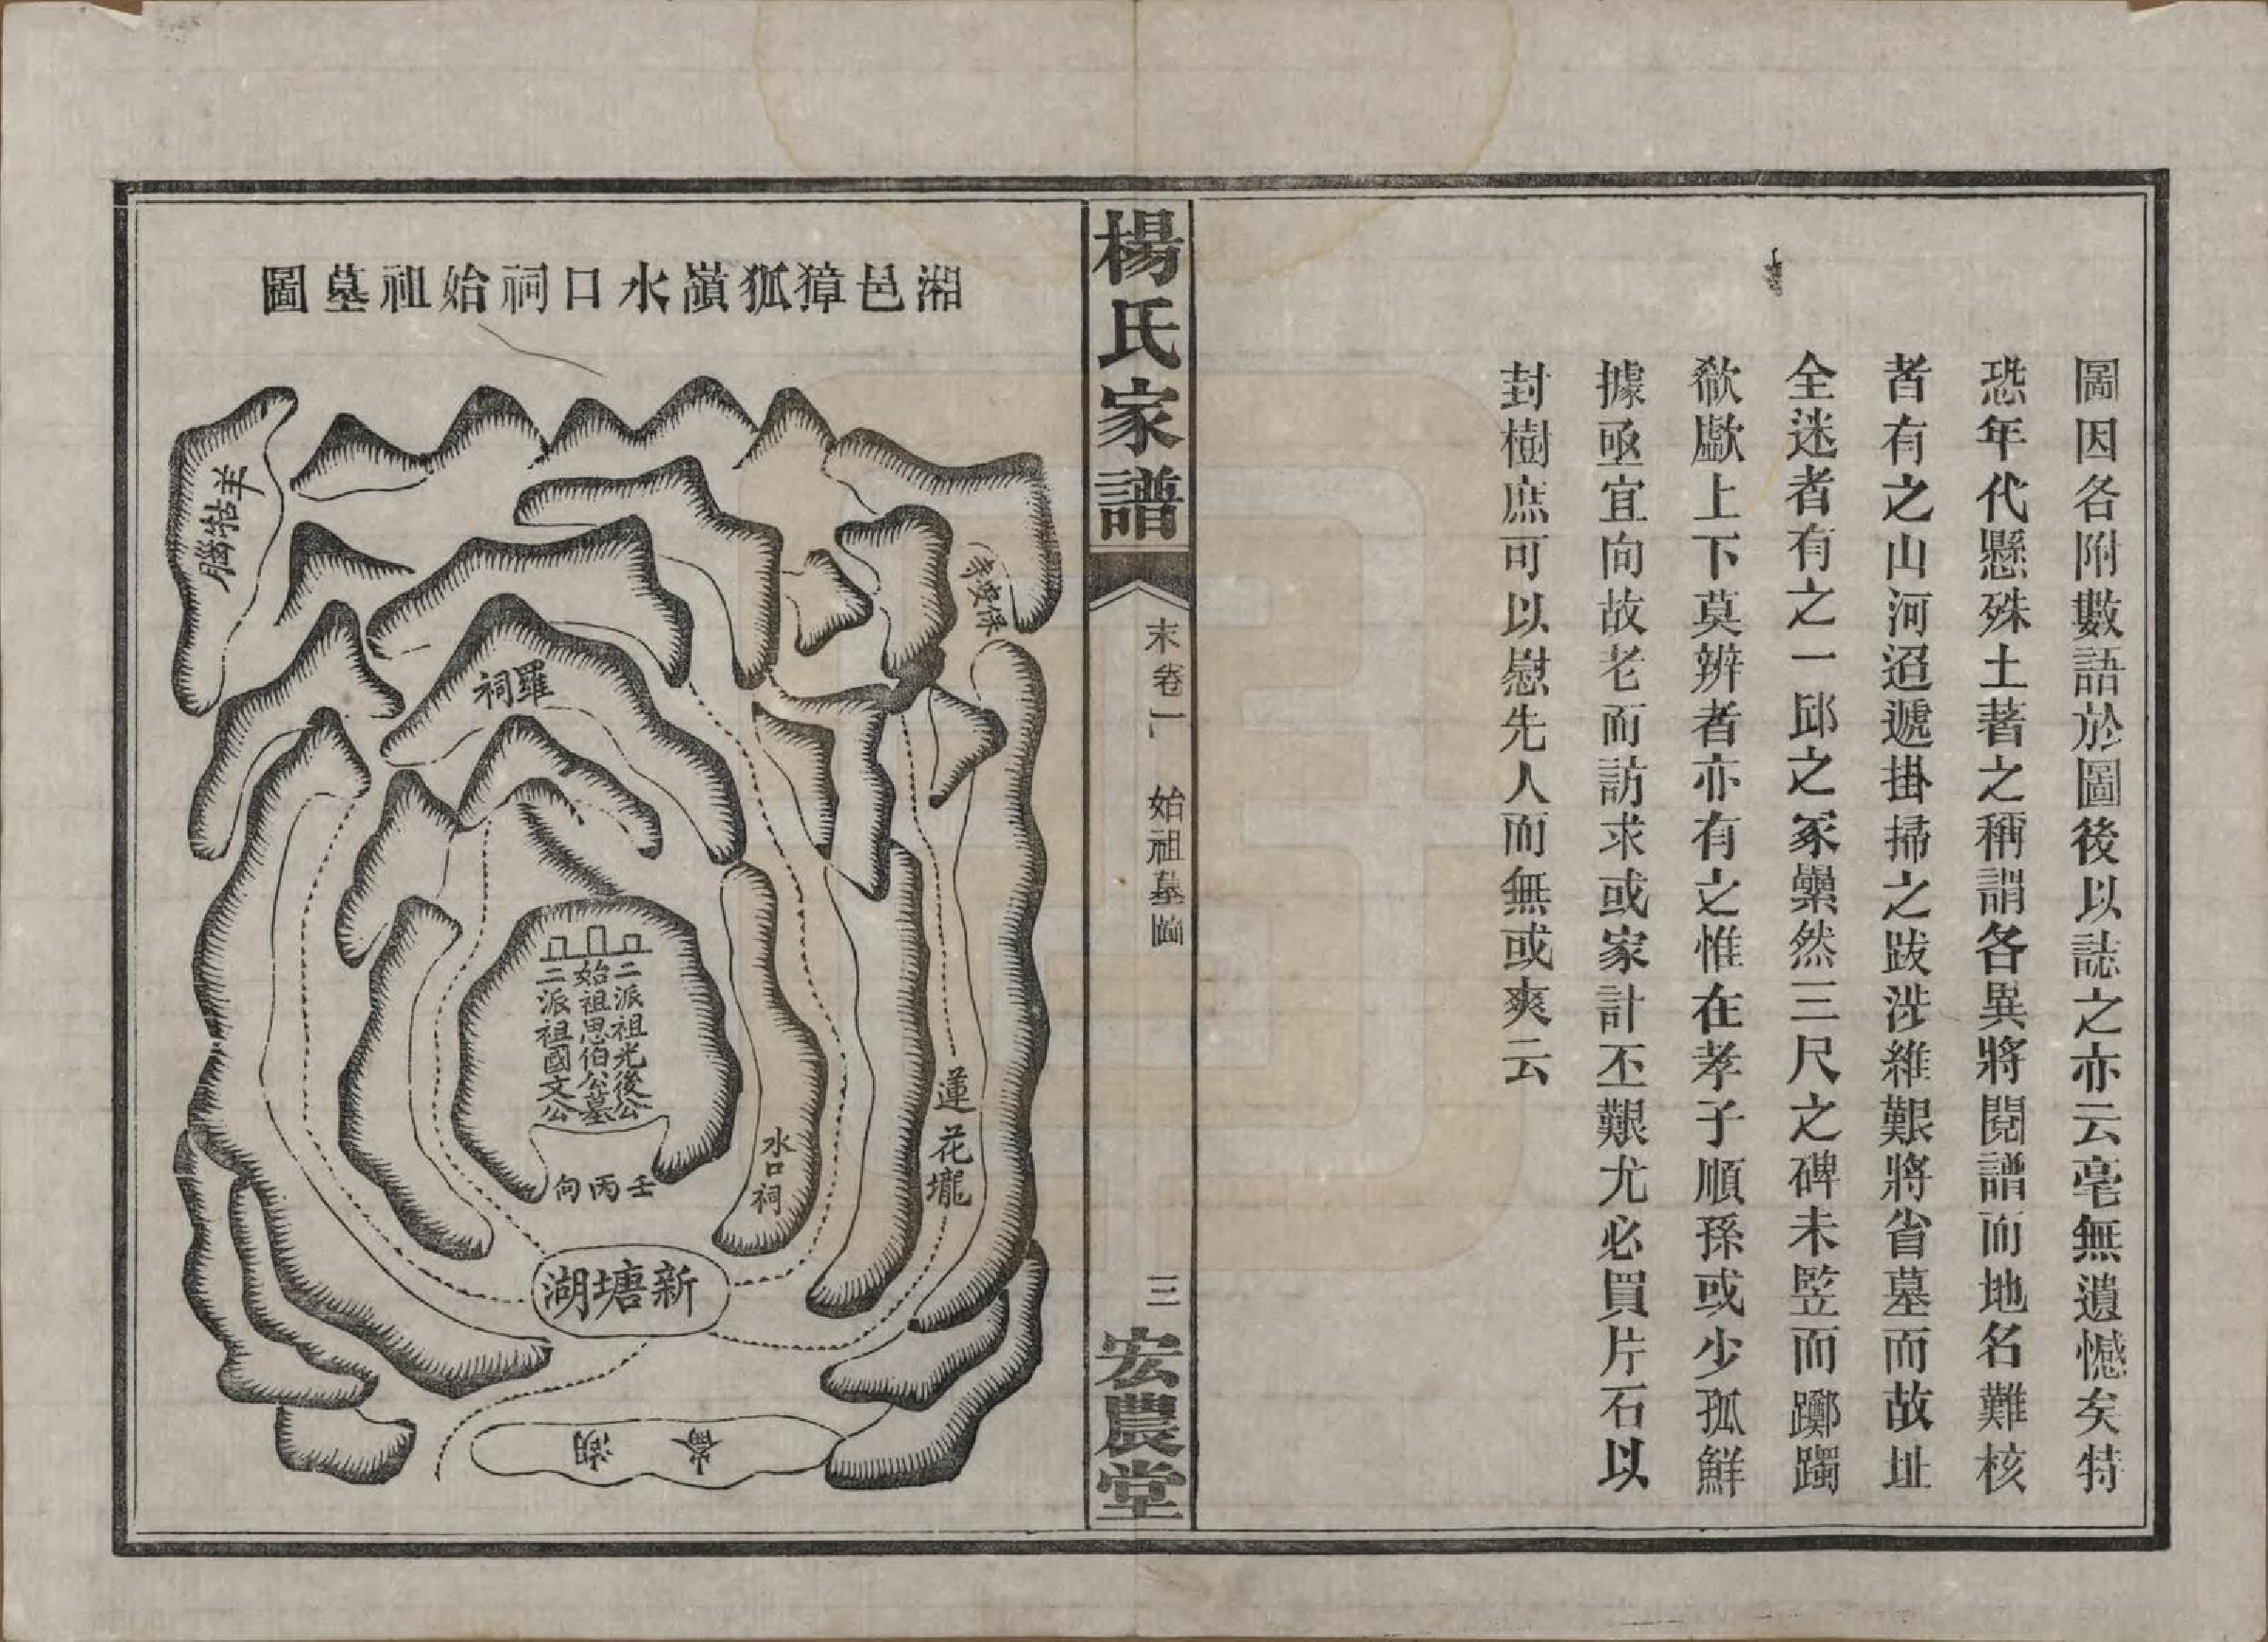 圖因各附數語於圖後以誌之亦云毫無遺憾矣特
恐年代懸殊土著之稱謂各異將閱譜而地名難核
者有之山河迢遞掛掃之跋涉維艱將省墓而故址
全迷者有之一邱之冢纍然三尺之碑未竪而躑躅
欷歔上下莫辨者亦有之惟在孝子順孫或少孤鮮
據亟宜向故老而訪求或家計丕艱尤必買片石以
封樹庶可以慰先人而無或爽云
楊氏家譜
末卷一
始祖墓圖
三
宏農堂
湘邑獐狐嶺水口祠始祖墓圖
羊牯腦
羅祠
二派祖光後公
始祖思伯公墓
二派祖國文公
壬丙向
水口祠
蓮花壠
新塘湖
湖